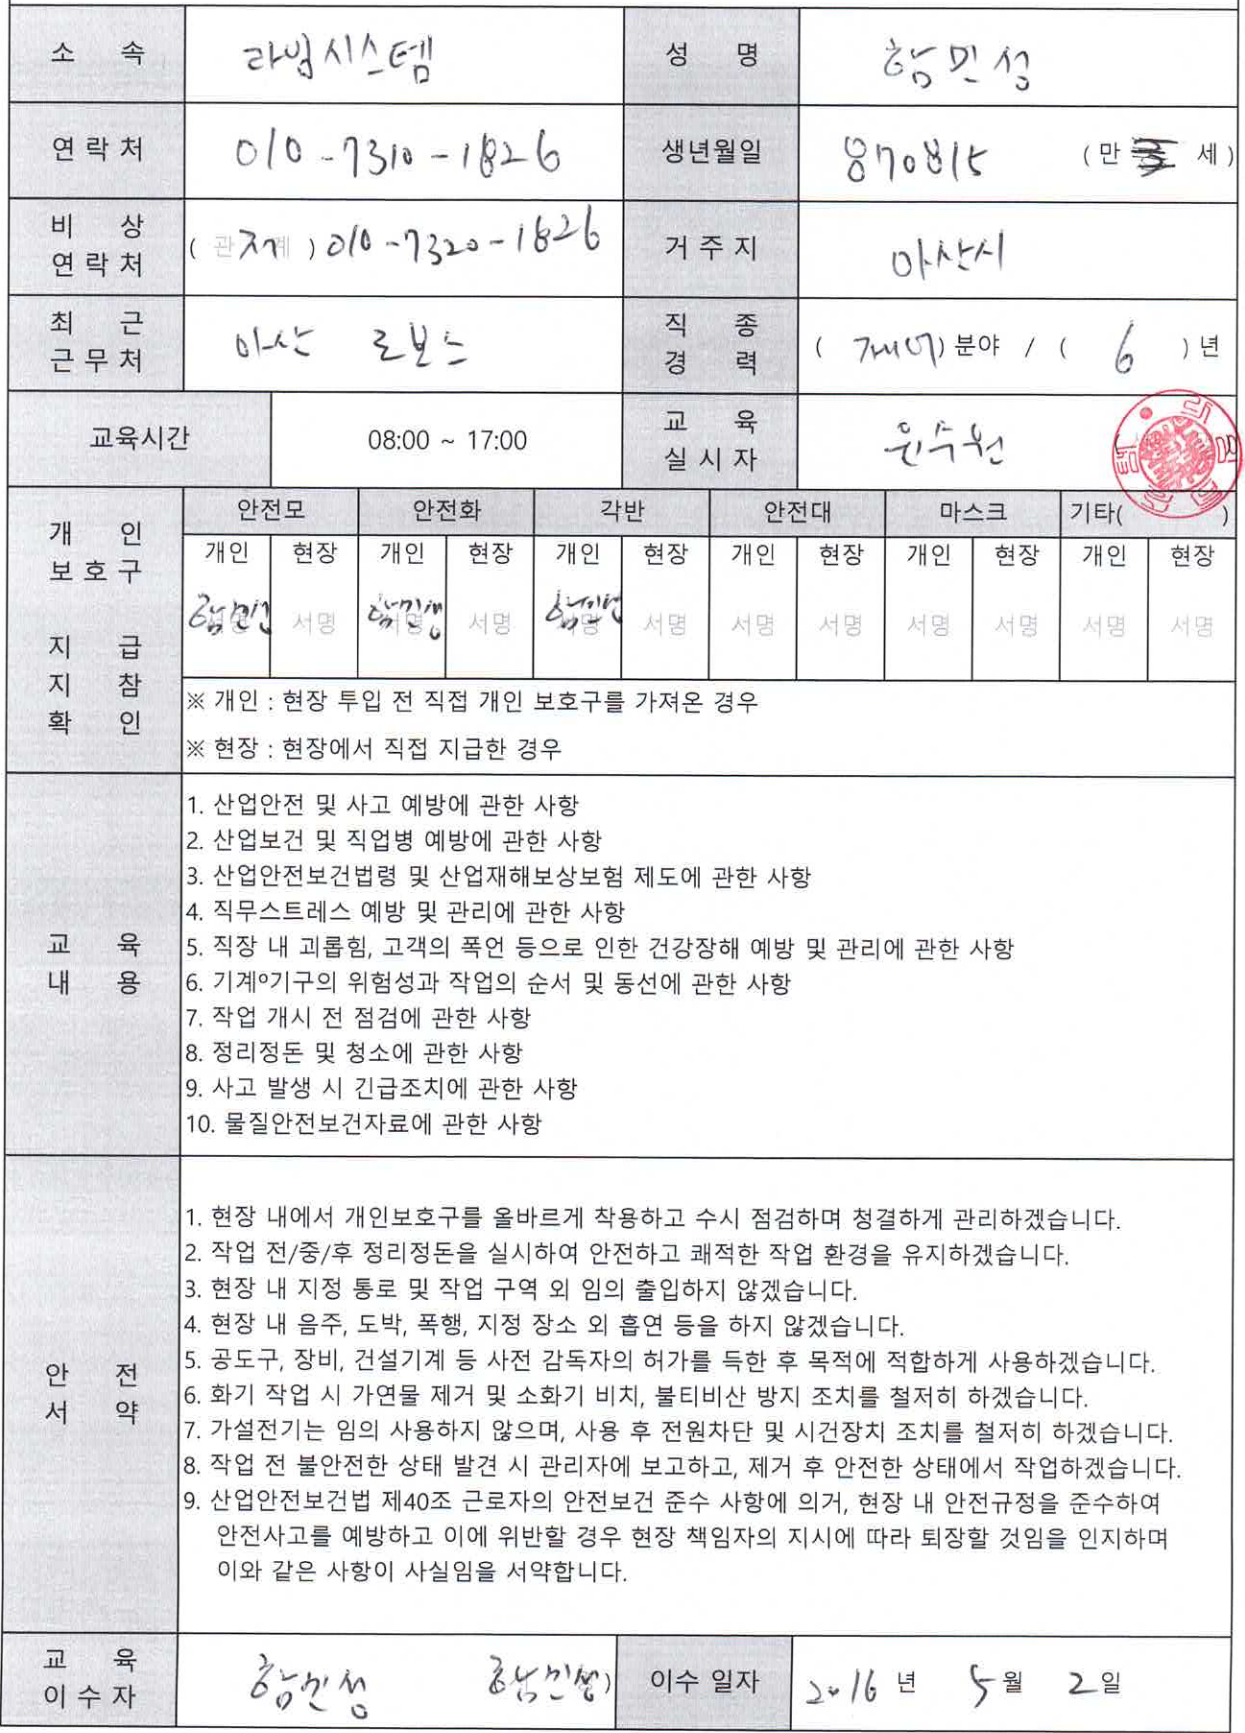 소 속 라빔시스템 성 명 함민성
연락처 010-7310-1826 생년월일 870815 (만 세)
비 상 연락처 (관계) 010-7320-1826 거주지 아산시
최 근 근무처 아산 로보스 직 종 경 력 (제어) 분야 / ( 6 ) 년
교육시간 08:00 ~ 17:00 교 육 실시자 윤수원
개 인 보호구 지 급 지 참 확 인
안전모 안전화 각반 안전대 마스크 기타( )
개인 현장 개인 현장 개인 현장 개인 현장 개인 현장 개인 현장
함민성 서명 함민성 서명 함민성 서명 서명 서명 서명 서명 서명 서명
※ 개인 : 현장 투입 전 직접 개인 보호구를 가져온 경우
※ 현장 : 현장에서 직접 지급한 경우
교 육 내 용
1. 산업안전 및 사고 예방에 관한 사항
2. 산업보건 및 직업병 예방에 관한 사항
3. 산업안전보건법령 및 산업재해보상보험 제도에 관한 사항
4. 직무스트레스 예방 및 관리에 관한 사항
5. 직장 내 괴롭힘, 고객의 폭언 등으로 인한 건강장해 예방 및 관리에 관한 사항
6. 기계º기구의 위험성과 작업의 순서 및 동선에 관한 사항
7. 작업 개시 전 점검에 관한 사항
8. 정리정돈 및 청소에 관한 사항
9. 사고 발생 시 긴급조치에 관한 사항
10. 물질안전보건자료에 관한 사항
안 전 서 약
1. 현장 내에서 개인보호구를 올바르게 착용하고 수시 점검하며 청결하게 관리하겠습니다.
2. 작업 전/중/후 정리정돈을 실시하여 안전하고 쾌적한 작업 환경을 유지하겠습니다.
3. 현장 내 지정 통로 및 작업 구역 외 임의 출입하지 않겠습니다.
4. 현장 내 음주, 도박, 폭행, 지정 장소 외 흡연 등을 하지 않겠습니다.
5. 공도구, 장비, 건설기계 등 사전 감독자의 허가를 득한 후 목적에 적합하게 사용하겠습니다.
6. 화기 작업 시 가연물 제거 및 소화기 비치, 불티비산 방지 조치를 철저히 하겠습니다.
7. 가설전기는 임의 사용하지 않으며, 사용 후 전원차단 및 시건장치 조치를 철저히 하겠습니다.
8. 작업 전 불안전한 상태 발견 시 관리자에 보고하고, 제거 후 안전한 상태에서 작업하겠습니다.
9. 산업안전보건법 제40조 근로자의 안전보건 준수 사항에 의거, 현장 내 안전규정을 준수하여
안전사고를 예방하고 이에 위반할 경우 현장 책임자의 지시에 따라 퇴장할 것임을 인지하며
이와 같은 사항이 사실임을 서약합니다.
교 육 이수자 함민성 함민성) 이수 일자 2016 년 5 월 2 일